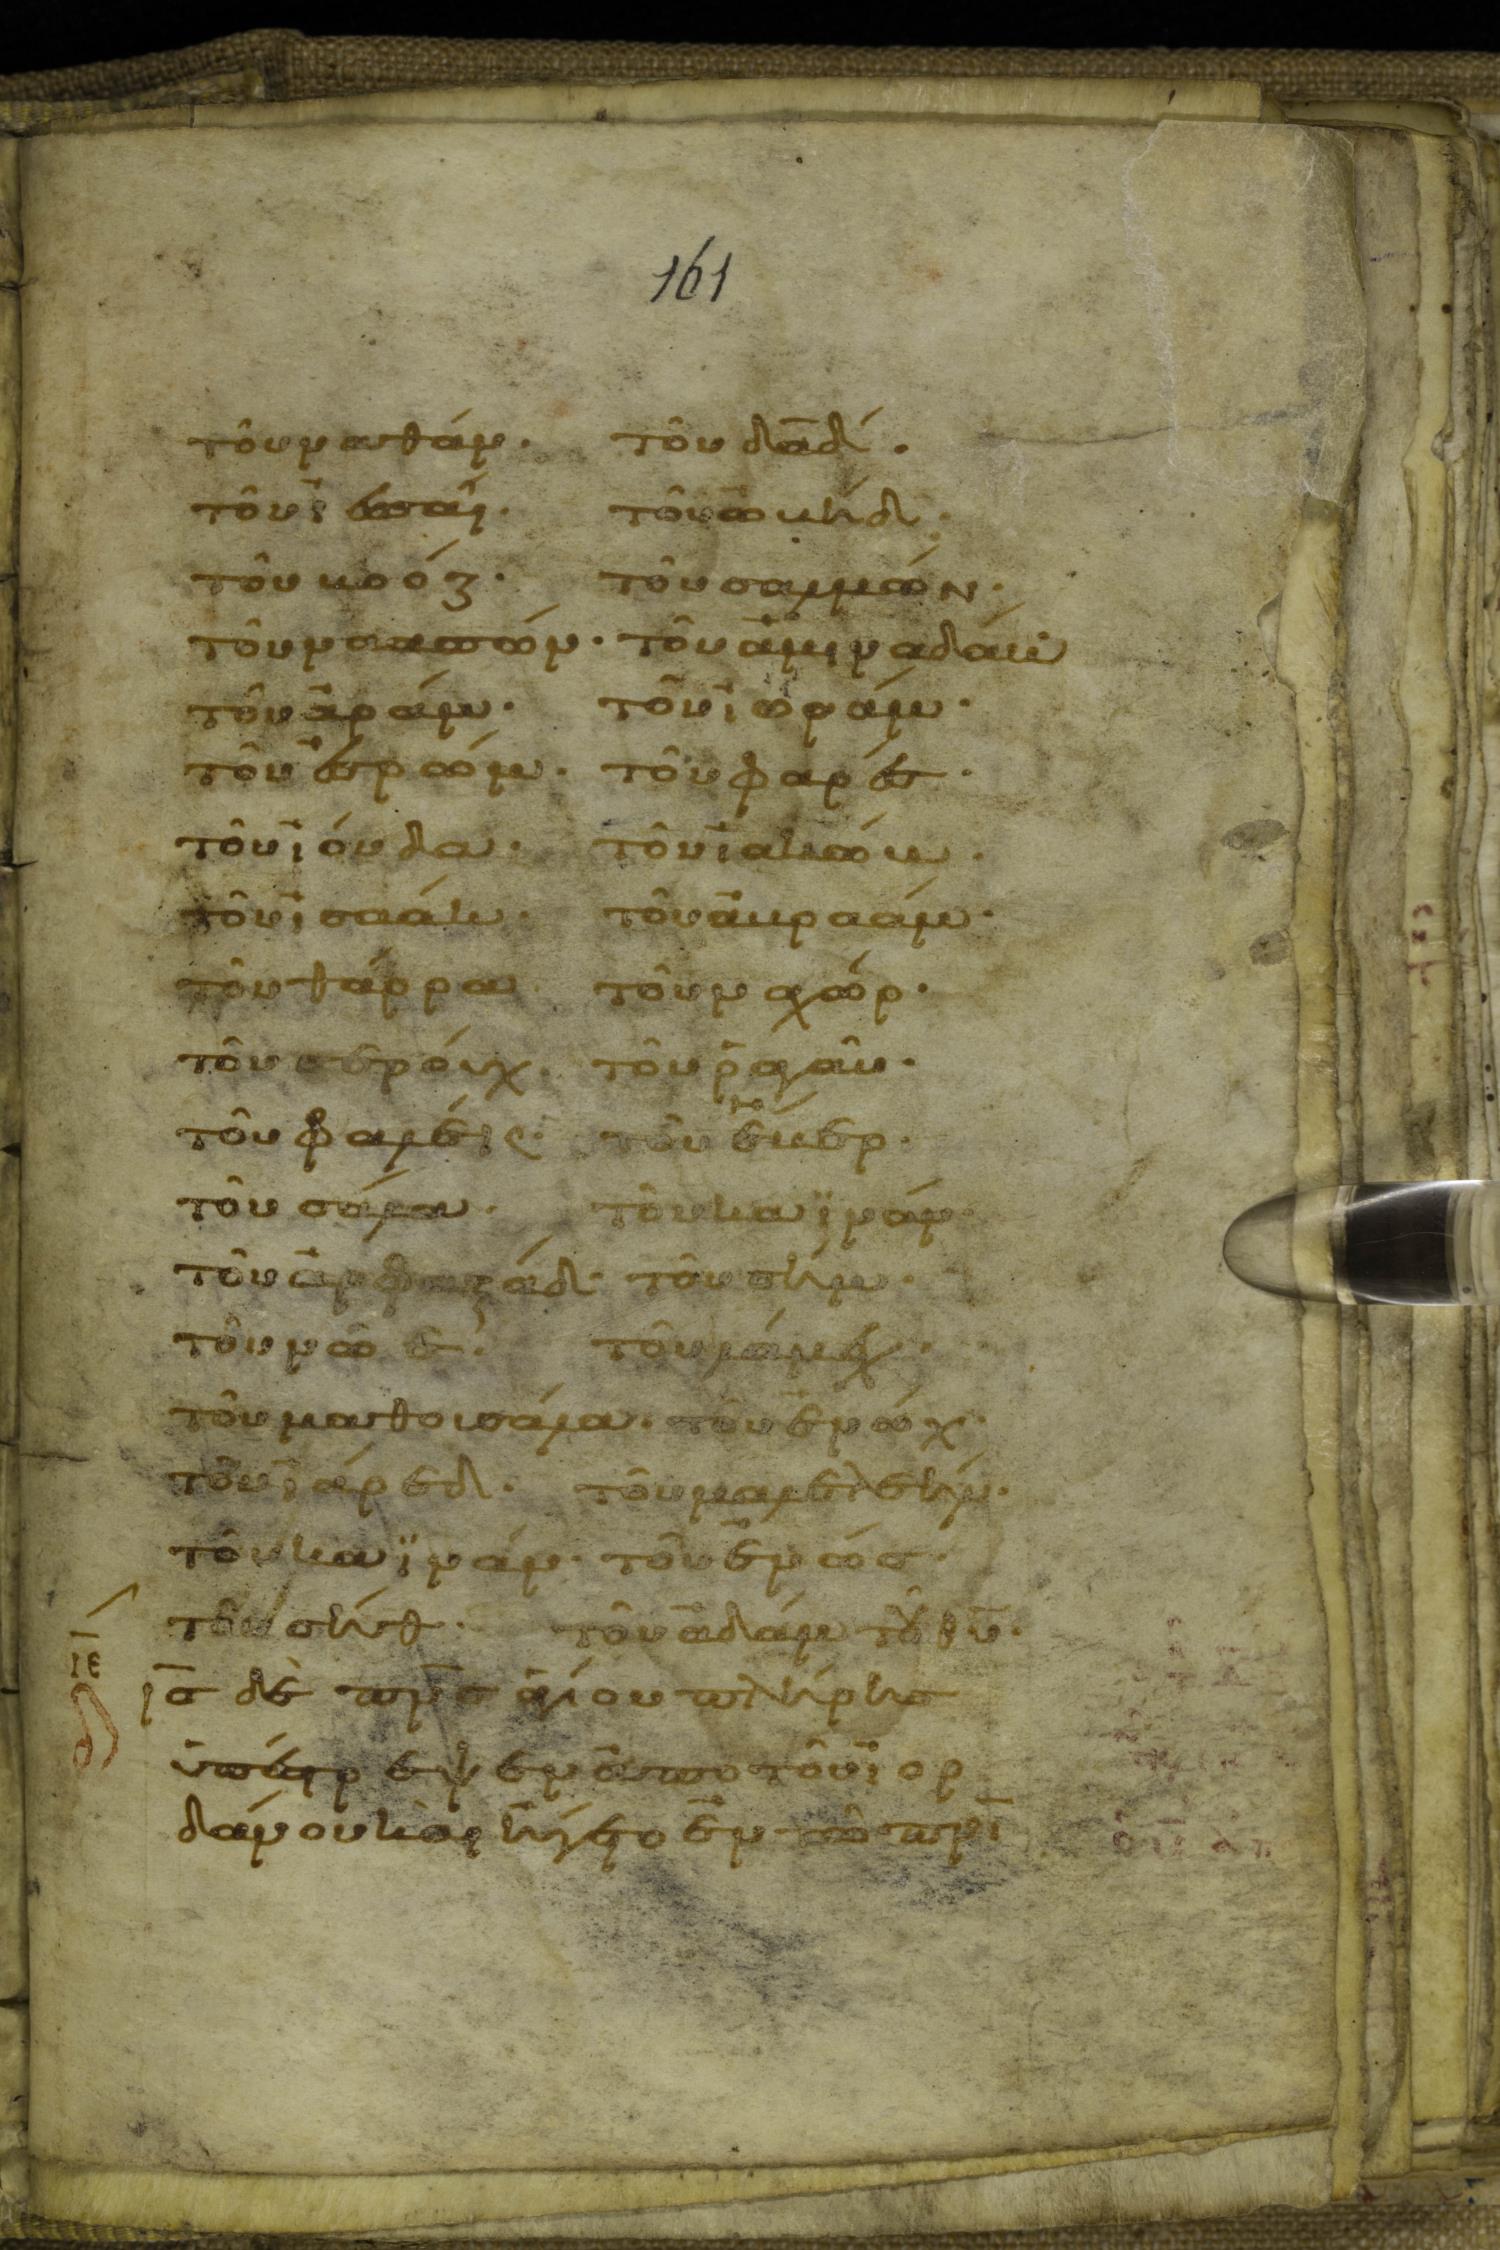 161
τοῦ ναθάν· τοῦ δᾱδ·
τοῦ ἰεσσαί· τοῦ ὠβήδ·
τοῦ βοόζ· τοῦ σαλμών·
τοῦ ναασσών· τοῦ ἀμιναδάβ
τοῦ ἀράμ· τοῦ ἰωράμ·
τοῦ ἐσρώμ· τοῦ φαρές·
τοῦ ἰούδα· τοῦ ἰακώβ·
τοῦ ἰσαάκ· τοῦ ἀβραάμ·
τοῦ θάρρα τοῦ ναχώρ·
τοῦ σερούχ· τοῦ ῥαγαῦ·
τοῦ φαλέκ· τοῦ ἔβερ·
τοῦ σάλα· τοῦ καϊνάν·
τοῦ ἀρφαξάδ· τοῦ σήμ·
τοῦ νῶε· τοῦ λάμεχ·
τοῦ μαθουσάλα· τοῦ ἐνώχ·
τοῦ ἰάρεδ· τοῦ μαλελεήλ·
τοῦ καϊνάν· τοῦ ἐνώς·
τοῦ σήθ· τοῦ ἀδάμ τοῦ θ̅υ̅·
ιε
ι̅ς̅ δὲ π̅ν̅ς̅ ἁγίου πλήρης
ὑπέστρεψεν ἀπο τοῦ ἰορ
δάνου καὶ ἤγετο ἐν τῶ π̅ν̅ι̅